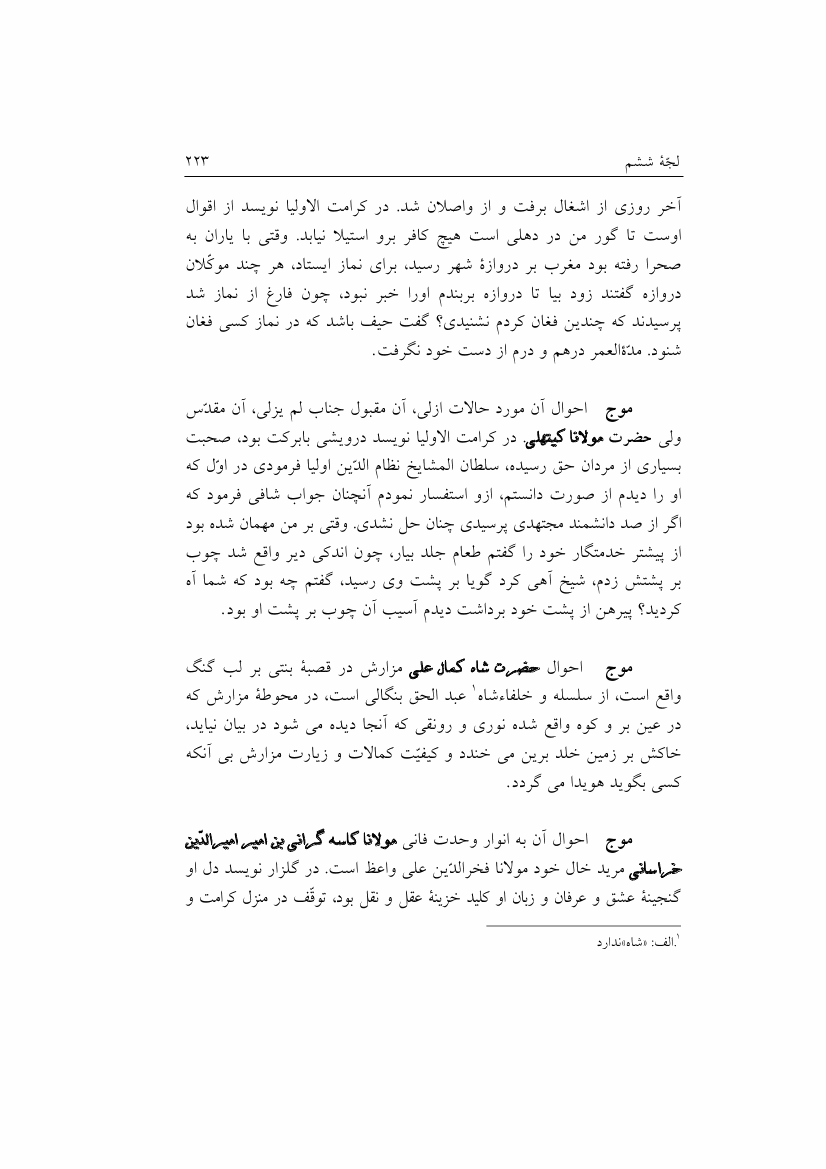 لجّهٔ ششم ۲۲۳
آخر روزی از اشغال برفت و از واصلان شد. در کرامت الاولیا نویسد از اقوال
اوست تا گور من در دهلی است هیچ کافر برو استیلا نیابد. وقتی با یاران به
صحرا رفته بود مغرب بر دروازهٔ شهر رسید، برای نماز ایستاد، هر چند موکّلان
دروازه گفتند زود بیا تا دروازه بربندم اورا خبر نبود، چون فارغ از نماز شد
پرسیدند که چندین فغان کردم نشنیدی؟ گفت حیف باشد که در نماز کسی فغان
شنود. مدّةالعمر درهم و درم از دست خود نگرفت.
موج احوال آن مورد حالات ازلی، آن مقبول جناب لم یزلی، آن مقدّس
ولی حضرت مولانا کیتهلی. در کرامت الاولیا نویسد درویشی بابرکت بود، صحبت
بسیاری از مردان حق رسیده، سلطان المشایخ نظام الدّین اولیا فرمودی در اوّل که
او را دیدم از صورت دانستم، ازو استفسار نمودم آنچنان جواب شافی فرمود که
اگر از صد دانشمند مجتهدی پرسیدی چنان حل نشدی. وقتی بر من مهمان شده بود
از پیشتر خدمتگار خود را گفتم طعام جلد بیار، چون اندکی دیر واقع شد چوب
بر پشتش زدم، شیخ آهی کرد گویا بر پشت وی رسید، گفتم چه بود که شما آه
کردید؟ پیرهن از پشت خود برداشت دیدم آسیب آن چوب بر پشت او بود.
موج احوال حضرت شاه کمال علی مزارش در قصبهٔ بنتی بر لب گنگ
واقع است، از سلسله و خلفاءشاه۱ عبد الحق بنگالی است، در محوطهٔ مزارش که
در عین بر و کوه واقع شده نوری و رونقی که آنجا دیده می شود در بیان نیاید،
خاکش بر زمین خلد برین می خندد و کیفیّت کمالات و زیارت مزارش بی آنکه
کسی بگوید هویدا می گردد.
موج احوال آن به انوار وحدت فانی مولانا کاسه گرانی بن امیر امیرالدّین
خراسانی مرید خال خود مولانا فخرالدّین علی واعظ است. در گلزار نویسد دل او
گنجینهٔ عشق و عرفان و زبان او کلید خزینهٔ عقل و نقل بود، توقّف در منزل کرامت و
۱.الف: «شاه»ندارد